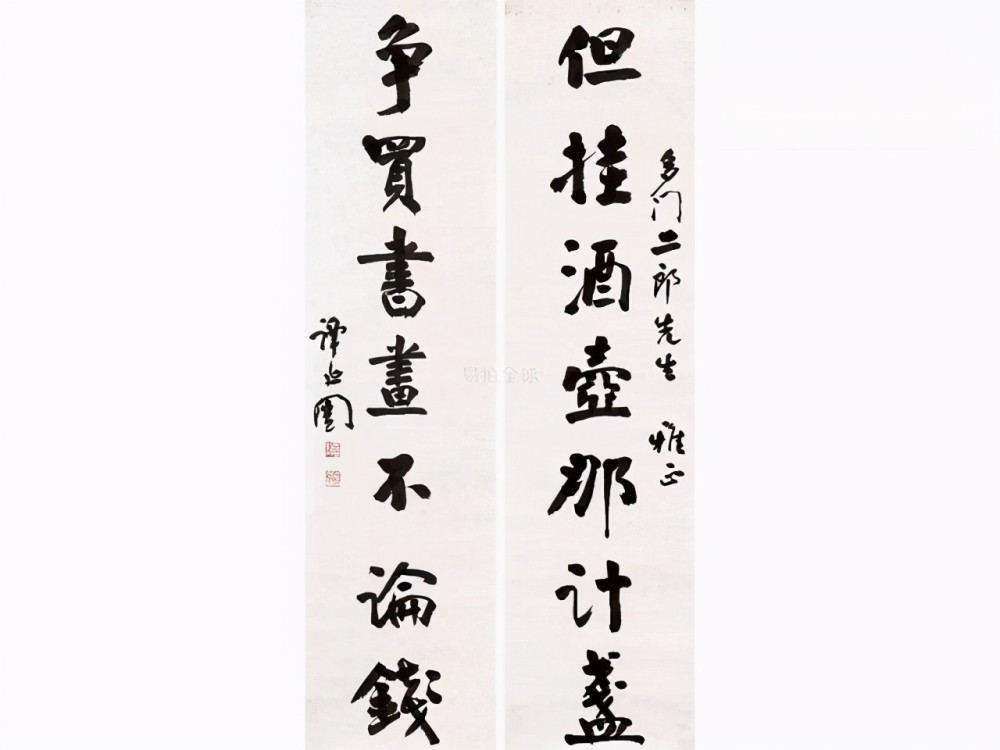 多门二郎先生 雅正
但挂酒壺那计盞
争買書畫不論錢
譚延闓
易拍全球